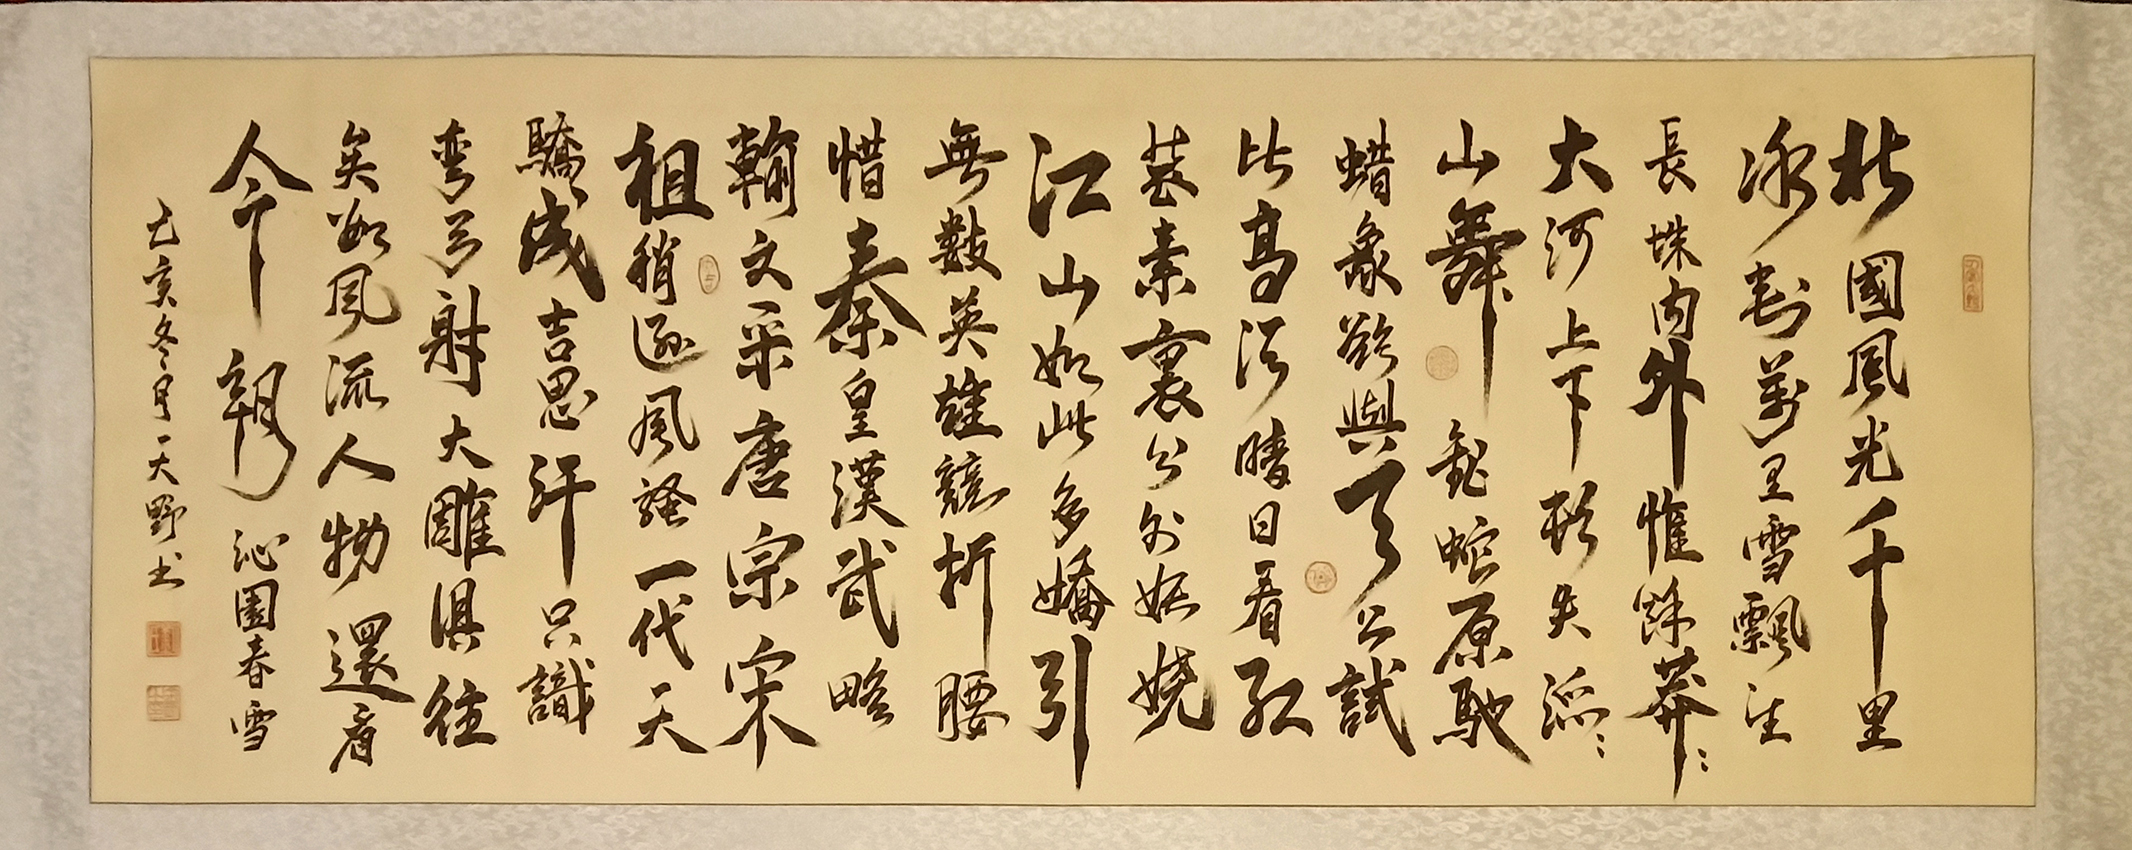 北國風光千里
冰封萬里雪飄望
長城内外惟餘莽：
大河上下頓失滔：
山舞銀蛇原馳
蜡象欲與天公試
比高須晴日看紅
裝素裹分外妖嬈
江山如此多嬌引
無數英雄競折腰
惜秦皇漢武略
輸文采唐宗宋
祖稍遜風騷一代天
驕成吉思汗只識
彎弓射大雕俱往
矣數風流人物還看
今朝 沁園春雪
己亥冬月一天野书